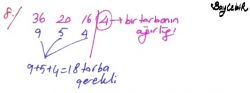 BAYÇEBİR
8/ 36 20 16 | 4 → bir torbanın
9 5 4 ağırlığı
9+5+4=18 torba
gerekli